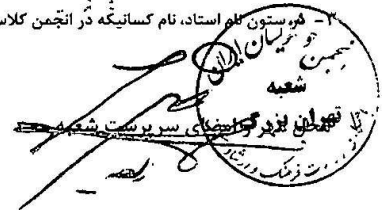 ۳- در ستون نام استاد، نام کسانیکه در انجمن کلاس
انجمن خوشنویسان ایران
شعبه
تهران بزرگ
محل مهر و امضای سرپرست شعبه